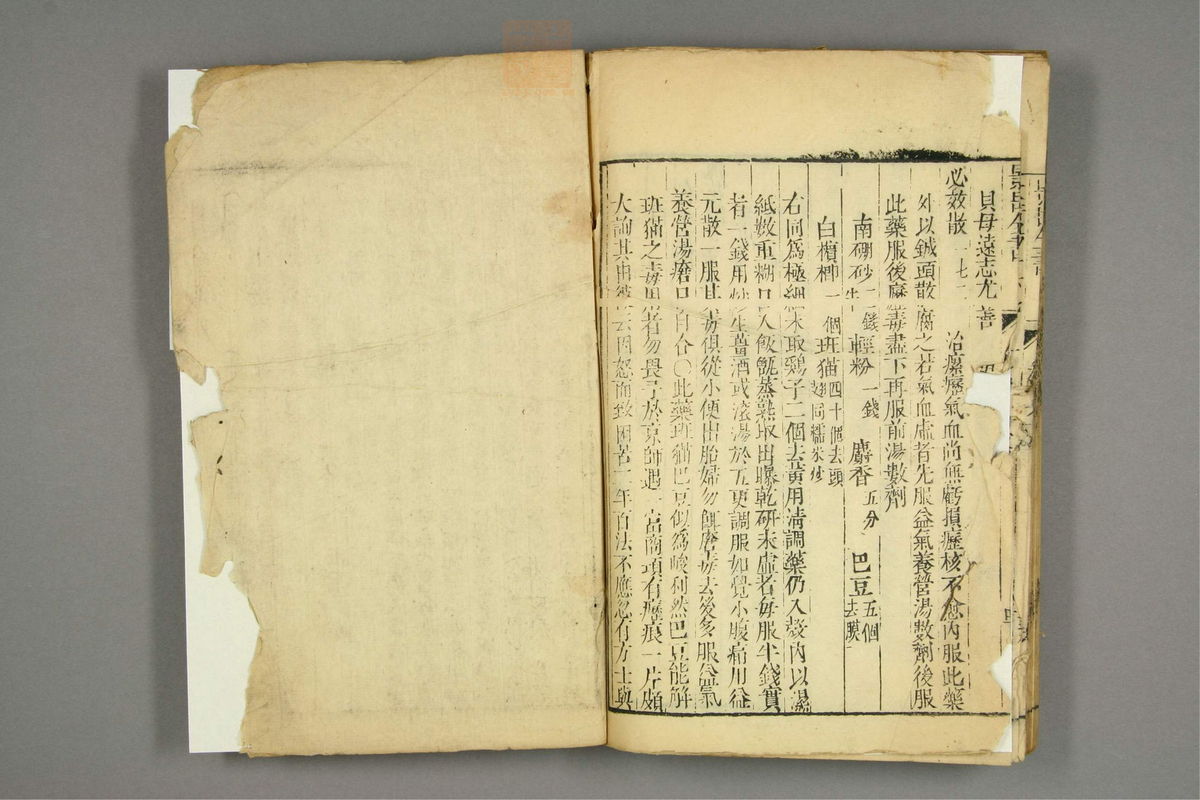 貝母遠志尤善
必效散 一七二 治瘰癧氣血尚無虧損癧核不愈內服此藥
外以鍼頭散腐之若氣血虛者先服益氣養營湯數劑後服
此藥服後癧毒盡下再服前湯數劑
南硼砂二錢 輕粉一錢 麝香五分 巴豆五個去膜
白檳榔一個 班猫四十個去頭翅同糯米炒
右同爲極細末取鷄子二個去黃用清調藥仍入殼內以濕
紙數重糊口入飯甑蒸熟取出曝乾研末虛者每服半錢實
者一錢用炒生薑酒或滾湯於五更調服如覺小腹痛用益
元散一服其毒俱從小便出胎婦勿餌癧毒去後多服益氣
養營湯瘡口自合○此藥班猫巴豆似爲峻利然巴豆能解
班猫之毒用者勿畏予於京師遇一富商項有癧痕一片頗
大詢其由彼云因怒而致困苦二年百法不應忽有方士與